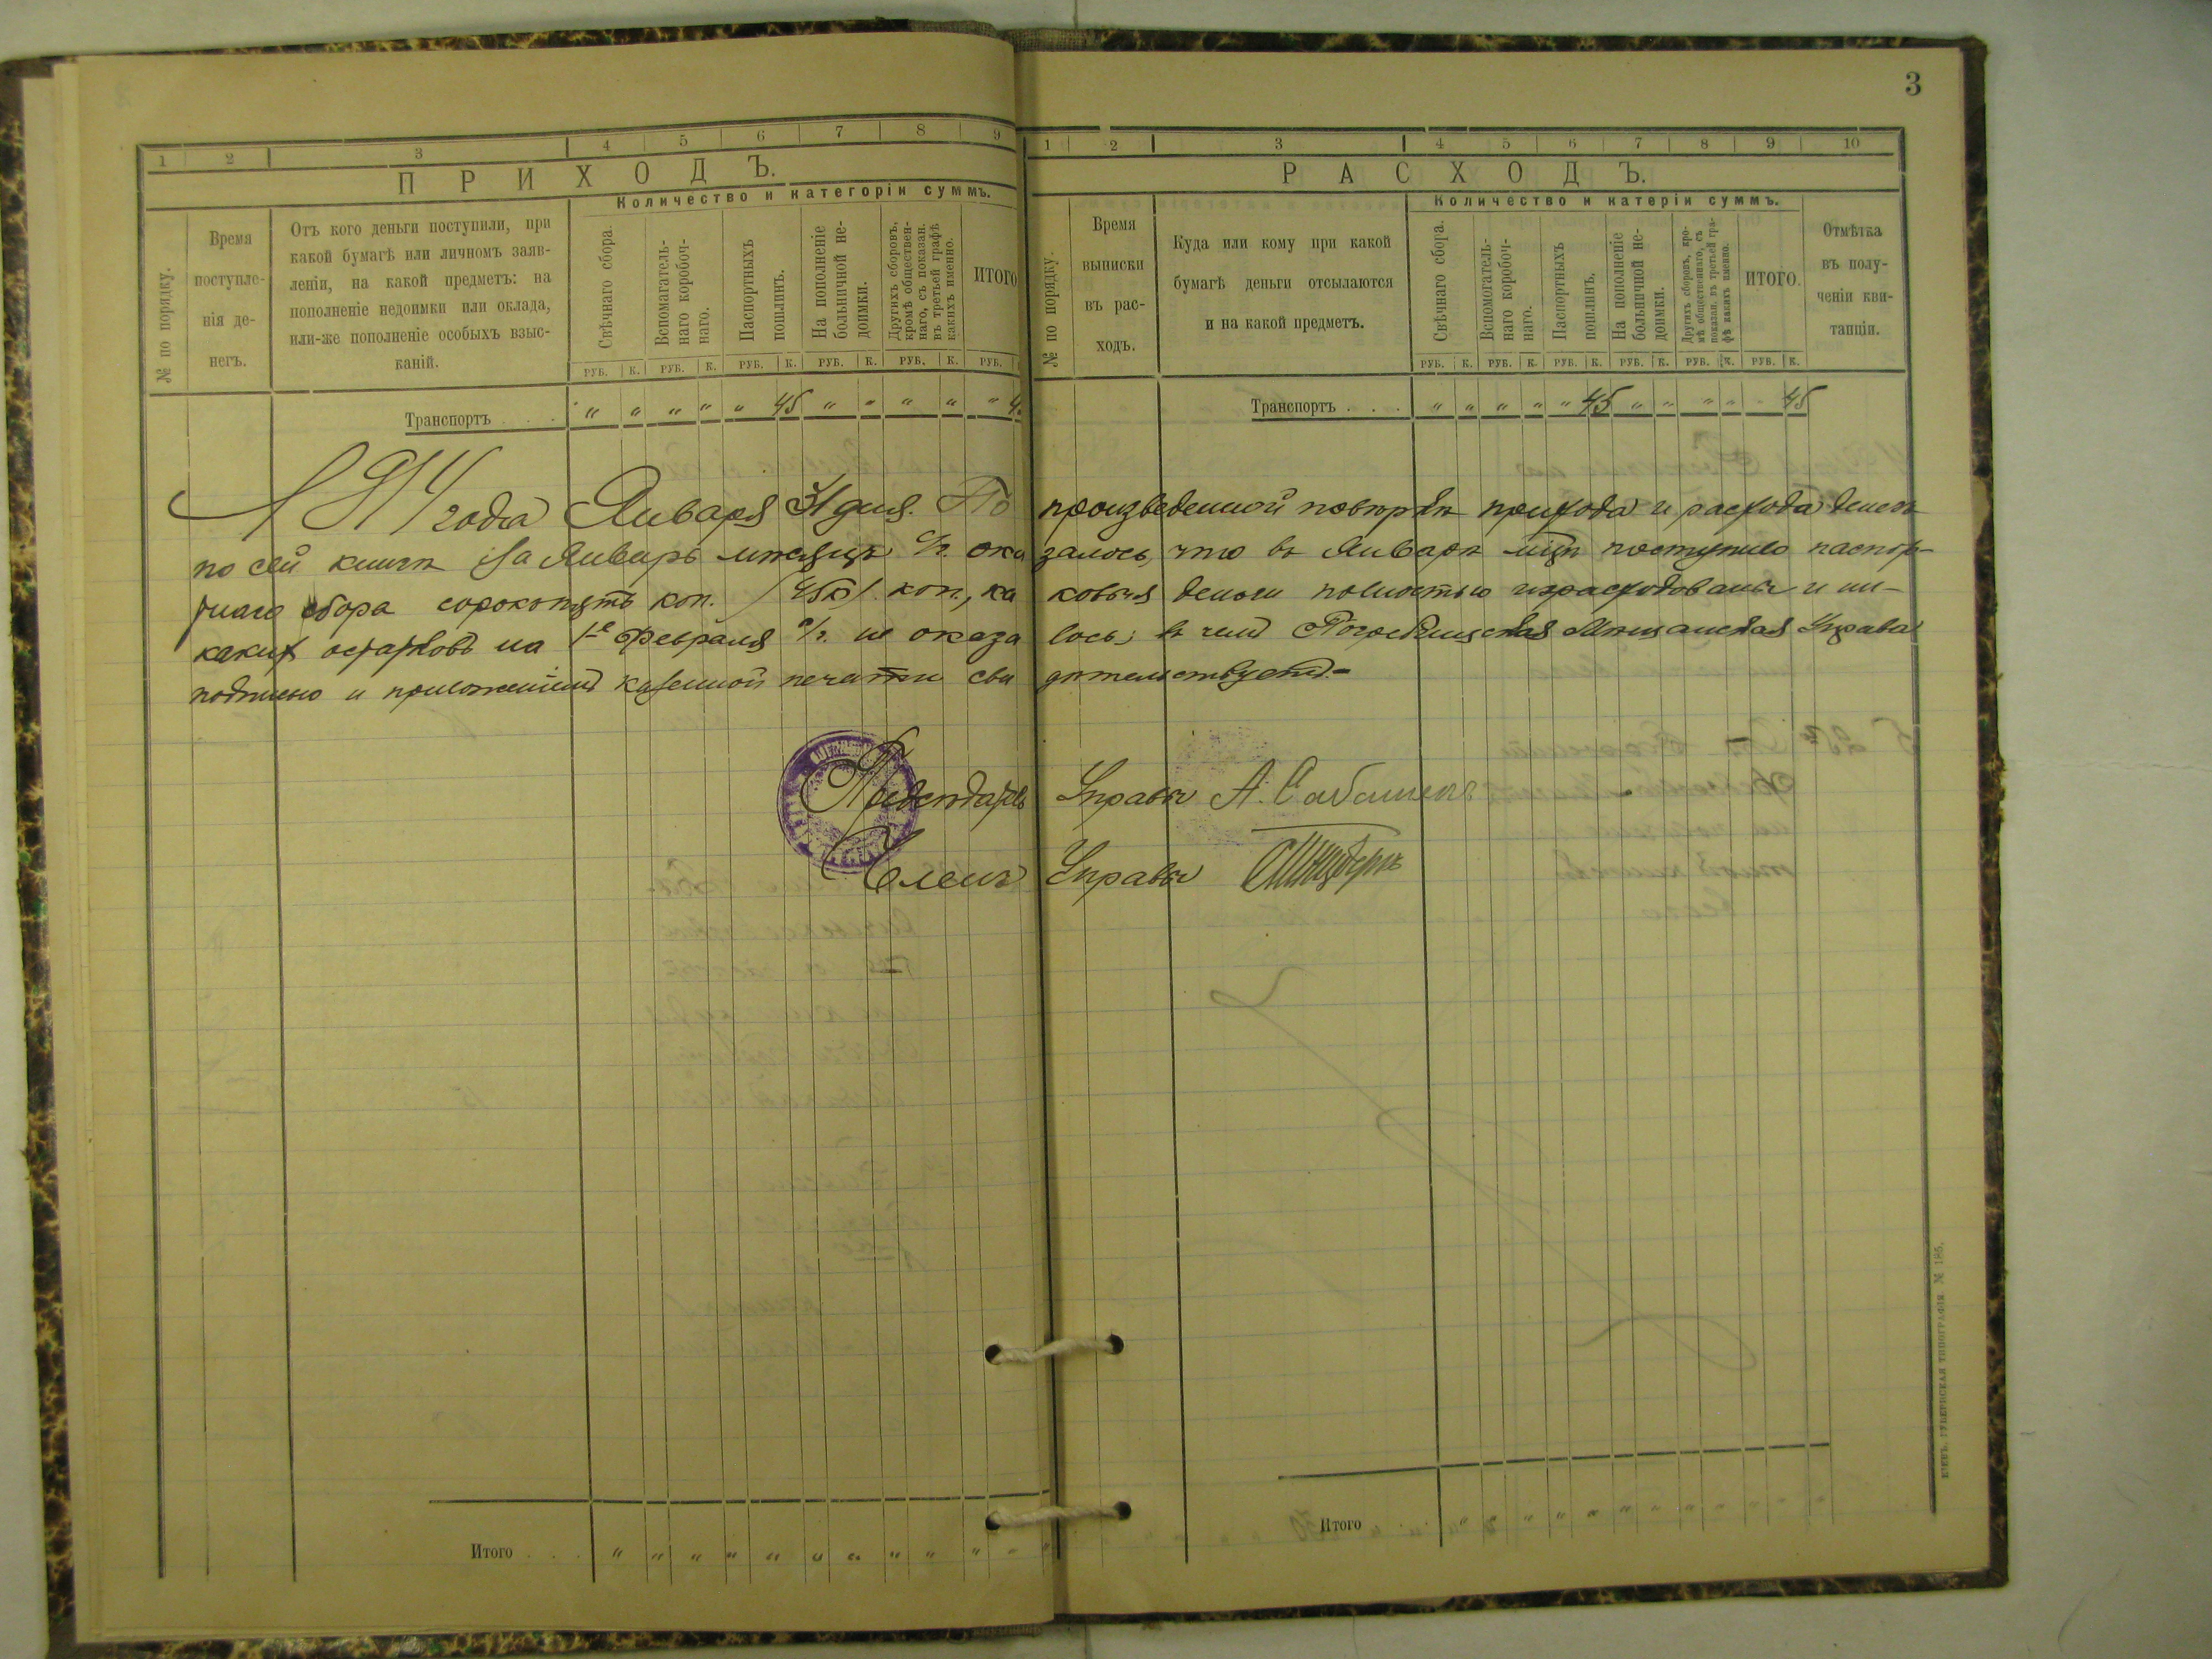 3
1 2 3 4 5 6 7 8 9
ПРИХОДЪ.
Количество и категоріи суммъ.
№ по порядку.
Время
поступле-
нія де-
негъ.
Отъ кого деньги поступили, при
какой бумагѣ или личномъ заяв-
леніи, на какой предметъ: на
пополненіе недоимки или оклада,
или-же пополненіе особыхъ взыс-
каній.
Свѣчнаго сбора.
Вспомагатель-
наго коробоч-
наго.
Паспортныхъ
пошлинъ.
На пополненіе
больничной не-
доимки.
Другихъ сборовъ,
кромѣ обществен-
наго, съ показан.
въ третьей графѣ
какихъ именно.
ИТОГО
РУБ. К. РУБ. К. РУБ. К. РУБ. К. РУБ. К. РУБ.
Транспортъ . . . " " " " " 45 " " " " " 4
1 2 3 4 5 6 7 8 9 10
РАСХОДЪ.
Количество и катеріи суммъ.
№ по порядку.
Время
выписки
въ рас-
ходъ.
Куда или кому при какой
бумагѣ деньги отсылаются
и на какой предметъ.
Свѣчнаго сбора.
Вспомогатель-
наго коробоч-
наго.
Паспортныхъ
пошлинъ.
На пополненіе
больничной не-
доимки.
Другихъ сборовъ, кро-
мѣ общественнаго, съ
показан. въ третьей гра-
фѣ какихъ именно.
ИТОГО.
Отмѣтка
въ полу-
ченіи кви-
танціи.
РУБ. К. РУБ. К. РУБ. К. РУБ. К. РУБ. К. РУБ. К.
Транспортъ . . . " " " " " 45 " " " " " 45
1914 года Января 31 дня. По произведенной повѣркѣ прихода и расхода денегъ
по сей книгѣ за Январь мѣсяцъ с/г. оказалось, что въ Январѣ мцѣ поступило паспор-
тнаго сбора сорокопять коп. /45к/ коп., каковыя деньги полностью израсходованы и ни-
какихъ остатковъ на 1-е Февраля с/г. не оказалось; въ чемъ Погребищская Мѣщанская Управа
подписью и приложеніемъ казенной печати свидѣтельствуетъ.-
Предсѣдатель Управы А.
Членъ Управы
Итого . . . " " " " " " " " " " " "
Итого " " " " " " " " " " " "
КІЕВЪ. ГУБЕРНСКАЯ ТИПОГРАФІЯ № 185.